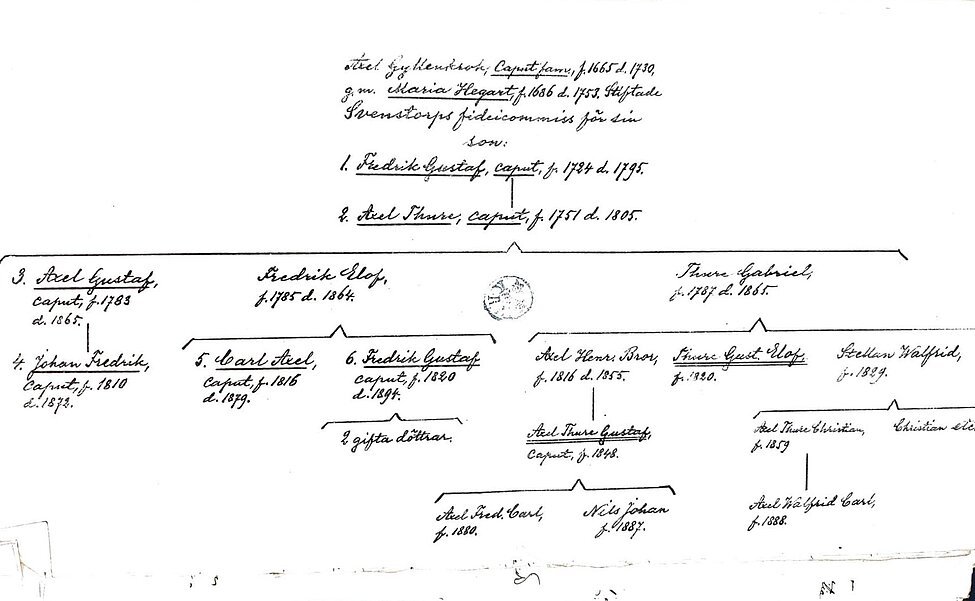 Axel Gyllenkrok, Caput fam., f. 1665 d. 1730,
g. m. Maria Hegart, f. 1686 d. 1753. Stiftade
Svenstorps fideicommiss för sin
son:
1. Fredrik Gustaf, caput, f. 1724 d. 1795.
2. Axel Thure, caput, f. 1751 d. 1805.
3. Axel Gustaf,
caput, f. 1783
d. 1865.
Fredrik Elof,
f. 1785 d. 1864.
Thure Gabriel,
f. 1787 d. 1865.
4. Johan Fredrik,
caput, f. 1810
d. 1872.
5. Carl Axel,
caput, f. 1816
d. 1879.
6. Fredrik Gustaf
caput, f. 1820
d. 1894.
Axel Henr. Bror,
f. 1816 d. 1855.
Thure Gust. Elof.
f. 1820.
Stellan Walfrid,
f. 1829.
2 gifta döttrar.
Axel Thure Gustaf,
caput, f. 1848.
Axel Thure Christian,
f. 1859
Christian etc
Axel Fred. Carl,
f. 1880.
Nils Johan
f. 1887.
Axel Walfrid Carl,
f. 1888.